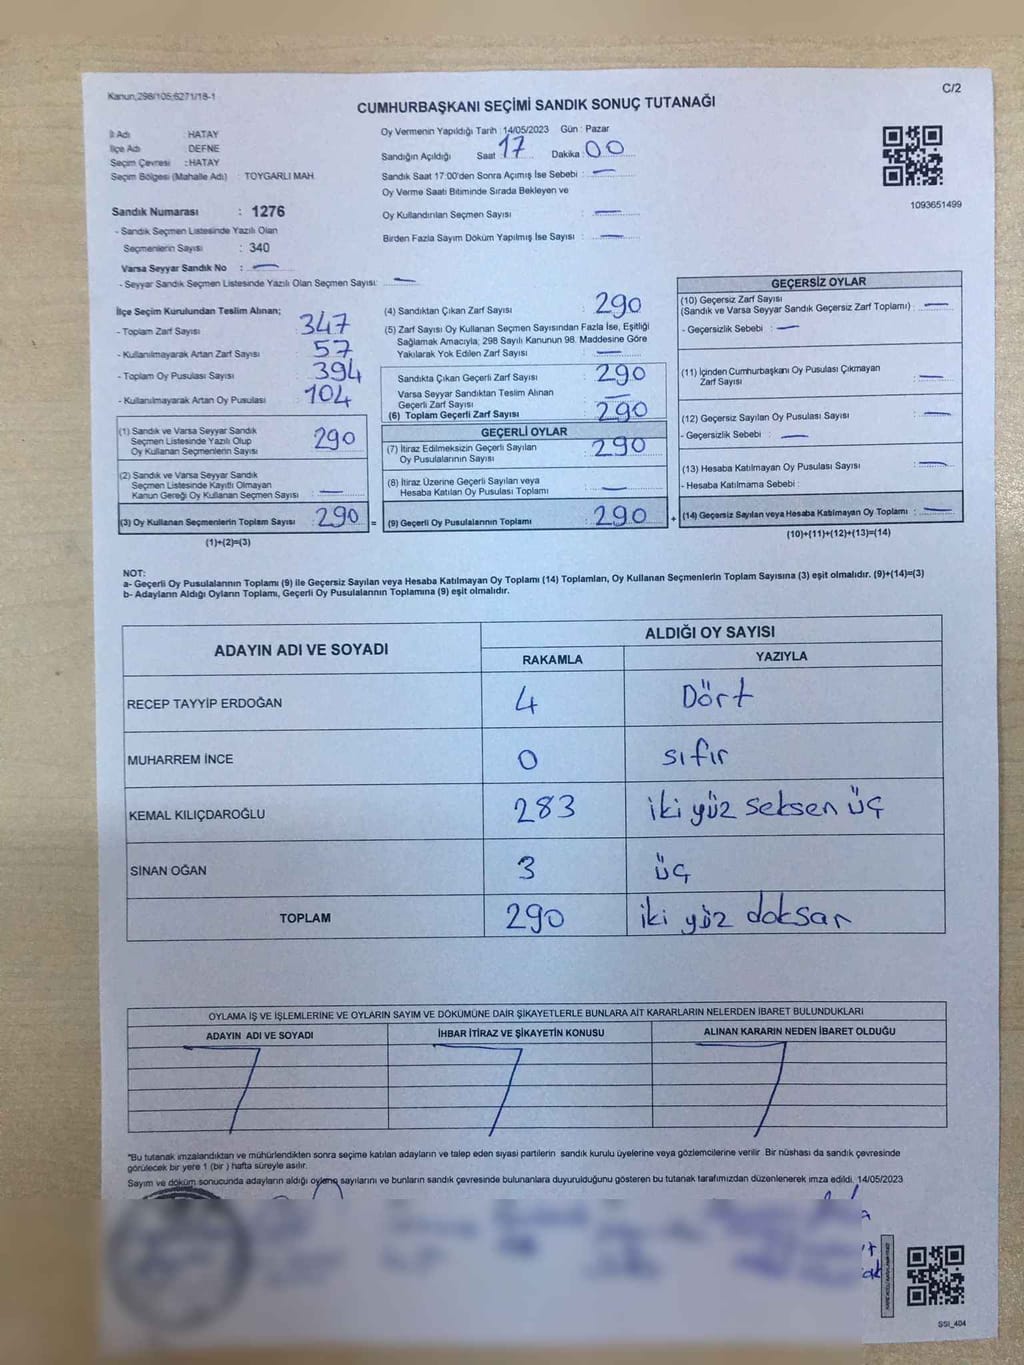 Kanun,298/105;6271/18-1
C/2
CUMHURBAŞKANI SEÇİMİ SANDIK SONUÇ TUTANAĞI
İl Adı : HATAY
İlçe Adı : DEFNE
Seçim Çevresi : HATAY
Seçim Bölgesi (Mahalle Adı) : TOYGARLI MAH.
Sandık Numarası : 1276
- Sandık Seçmen Listesinde Yazılı Olan
Seçmenlerin Sayısı : 340
Varsa Seyyar Sandık No : —
- Seyyar Sandık Seçmen Listesinde Yazılı Olan Seçmen Sayısı: —
Oy Vermenin Yapıldığı Tarih : 14/05/2023 Gün : Pazar
Sandığın Açıldığı Saat : 17 Dakika : 00
Sandık Saat 17:00'den Sonra Açımış İse Sebebi : —
Oy Verme Saati Bitiminde Sırada Bekleyen ve
Oy Kullandırılan Seçmen Sayısı : —
Birden Fazla Sayım Döküm Yapılmış İse Sayısı : —
1093651499
İlçe Seçim Kurulundan Teslim Alınan;
- Toplam Zarf Sayısı : 347
- Kullanılmayarak Artan Zarf Sayısı : 57
- Toplam Oy Pusulası Sayısı : 394
- Kullanılmayarak Artan Oy Pusulası : 104
(1) Sandık ve Varsa Seyyar Sandık
Seçmen Listesinde Yazılı Olup
Oy Kullanan Seçmenlerin Sayısı : 290
(2) Sandık ve Varsa Seyyar Sandık
Seçmen Listesinde Kayıtlı Olmayan
Kanun Gereği Oy Kullanan Seçmen Sayısı : —
(3) Oy Kullanan Seçmenlerin Toplam Sayısı : 290 =
(1)+(2)=(3)
(4) Sandıktan Çıkan Zarf Sayısı : 290
(5) Zarf Sayısı Oy Kullanan Seçmen Sayısından Fazla İse, Eşitliği
Sağlamak Amacıyla, 298 Sayılı Kanunun 98. Maddesine Göre
Yakılarak Yok Edilen Zarf Sayısı : —
Sandıkta Çıkan Geçerli Zarf Sayısı : 290
Varsa Seyyar Sandıktan Teslim Alınan
Geçerli Zarf Sayısı : —
(6) Toplam Geçerli Zarf Sayısı : 290
GEÇERLİ OYLAR
(7) İtiraz Edilmeksizin Geçerli Sayılan
Oy Pusulalarının Sayısı : 290
(8) İtiraz Üzerine Geçerli Sayılan veya
Hesaba Katılan Oy Pusulası Toplamı : —
(9) Geçerli Oy Pusulalarının Toplamı : 290 +
GEÇERSİZ OYLAR
(10) Geçersiz Zarf Sayısı
(Sandık ve Varsa Seyyar Sandık Geçersiz Zarf Toplamı) : —
- Geçersizlik Sebebi : —
(11) İçinden Cumhurbaşkanı Oy Pusulası Çıkmayan
Zarf Sayısı : —
(12) Geçersiz Sayılan Oy Pusulası Sayısı : —
- Geçersizlik Sebebi : —
(13) Hesaba Katılmayan Oy Pusulası Sayısı : —
- Hesaba Katılmama Sebebi :
(14) Geçersiz Sayılan veya Hesaba Katılmayan Oy Toplamı : —
(10)+(11)+(12)+(13)=(14)
NOT:
a- Geçerli Oy Pusulalarının Toplamı (9) ile Geçersiz Sayılan veya Hesaba Katılmayan Oy Toplamı (14) Toplamları, Oy Kullanan Seçmenlerin Toplam Sayısına (3) eşit olmalıdır. (9)+(14)=(3)
b- Adayların Aldığı Oyların Toplamı, Geçerli Oy Pusulalarının Toplamına (9) eşit olmalıdır.
ADAYIN ADI VE SOYADI
ALDIĞI OY SAYISI
RAKAMLA YAZIYLA
RECEP TAYYİP ERDOĞAN 4 Dört
MUHARREM İNCE 0 sıfır
KEMAL KILIÇDAROĞLU 283 iki yüz seksen üç
SİNAN OĞAN 3 üç
TOPLAM 290 iki yüz doksan
OYLAMA İŞ VE İŞLEMLERİNE VE OYLARIN SAYIM VE DÖKÜMÜNE DAİR ŞİKAYETLERLE BUNLARA AİT KARARLARIN NELERDEN İBARET BULUNDUKLARI
ADAYIN ADI VE SOYADI İHBAR İTİRAZ VE ŞİKAYETİN KONUSU ALINAN KARARIN NEDEN İBARET OLDUĞU
"Bu tutanak imzalandıktan ve mühürlendikten sonra seçime katılan adayların ve talep eden siyasi partilerin sandık kurulu üyelerine veya gözlemcilerine verilir. Bir nüshası da sandık çevresinde
görülecek bir yere 1 (bir ) hafta süreyle asılır.
Sayım ve döküm sonucunda adayların aldığı oyların sayılarını ve bunların sandık çevresinde bulunanlara duyurulduğunu gösteren bu tutanak tarafımızdan düzenlenerek imza edildi. 14/05/2023
SSI_404